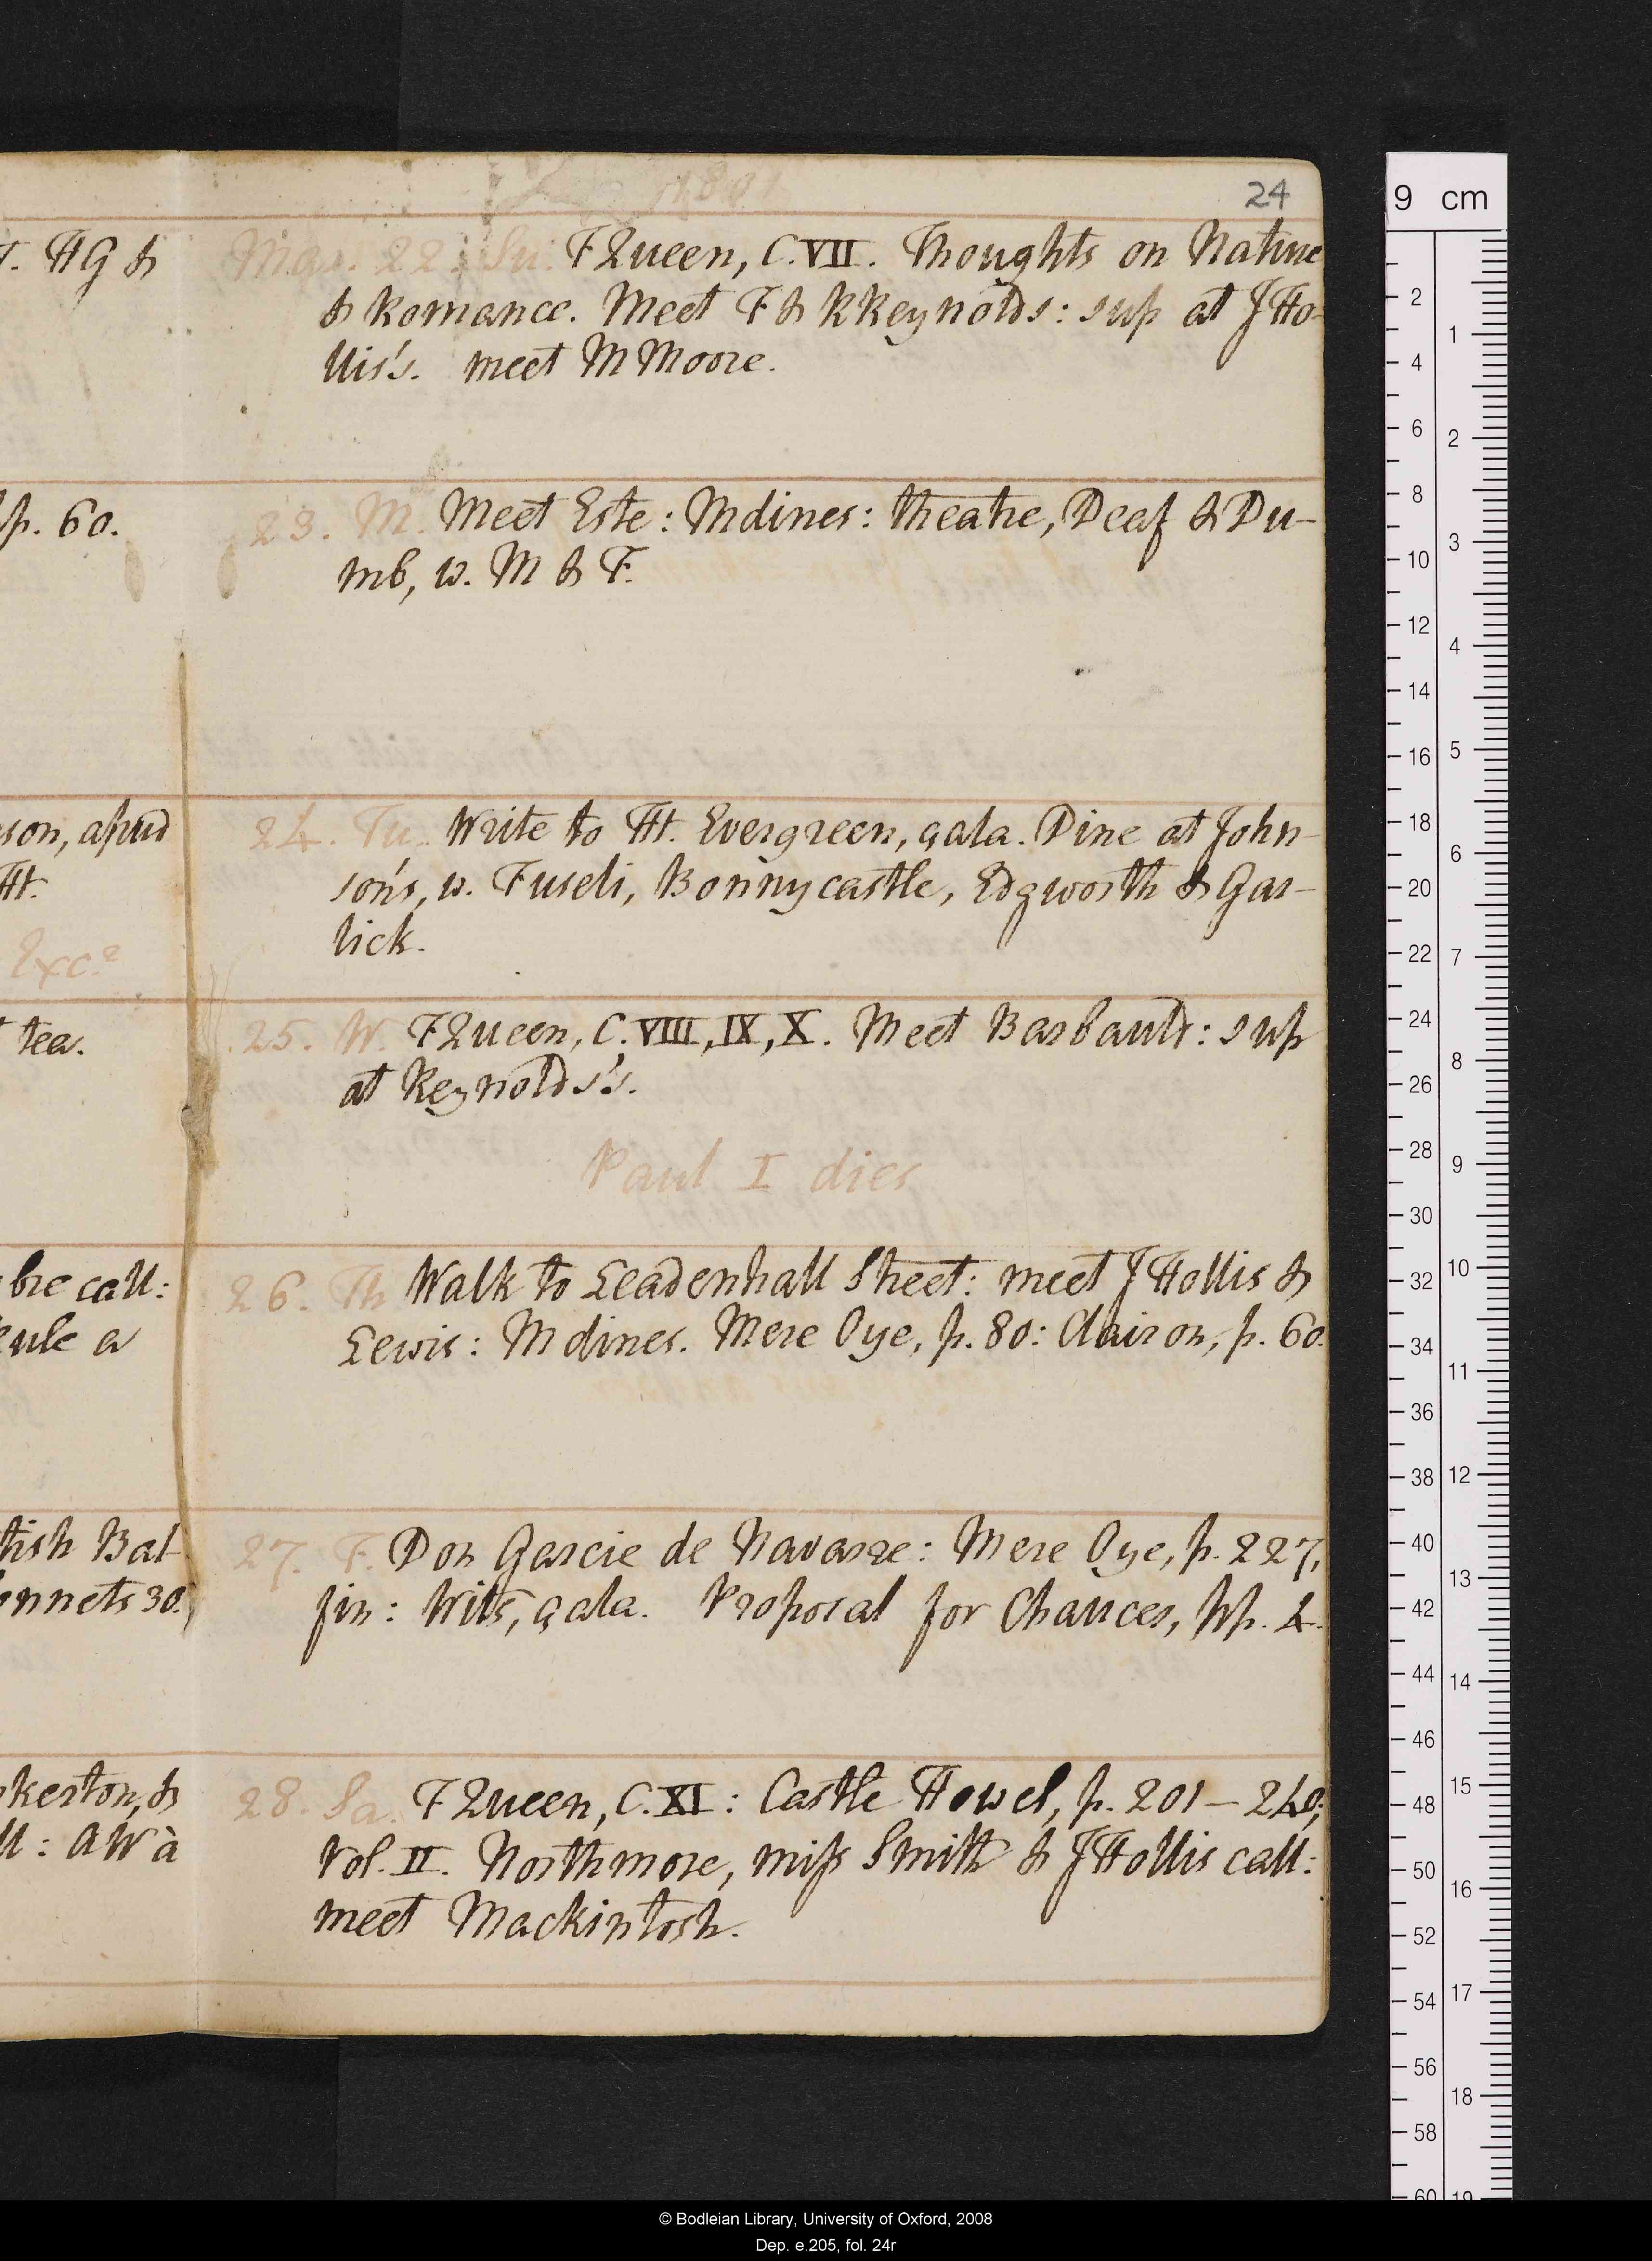 1801
24
T. HG &
p. 60.
son, apud
Ht.
Excc
tea.
bre call:
tish Bal
onnets 30.
kerton, &
ll: AW à
Mar. 22. Su. F Queen, C. VII. Thoughts on Nature
& Romance. Meet F & R Reynolds: sup at J Ho-
llis's. meet M Moore.
23. M. Meet Este: M dines: theatre, Deaf & Du-
mb, w. M & F.
24. Tu. Write to Ht. Evergreen, çala. Dine at John-
son's, w. Fuseli, Bonnycastle, Edgworth & Gar-
lick.
25. W. F Queen, C. VIII, IX, X. Meet Barbauld: sup
at Reynolds's.
Paul I dies
26. Th Walk to Leadenhall Street: meet J Hollis &
Lewis: M dines. Mere Oye, p. 80: Clairon, p. 60.
27. F. Don Garcie de Navarre: Mere Oye, p. 227,
fin: Wits, çala. Proposal for Chaucer, pp. 4.
28. Sa. F Queen, C. XI: Castle Howel, p. 201–240,
Vol. II. Northmore, miss Smith & J Hollis call:
meet Mackintosh.
9 cm
2
4
6
8
10
12
14
16
18
20
22
24
26
28
30
32
34
36
38
40
42
44
46
48
50
52
54
56
58
60
1
2
3
4
5
6
7
8
9
10
11
12
13
14
15
16
17
18
19
© Bodleian Library, University of Oxford, 2008
Dep. e.205, fol. 24r